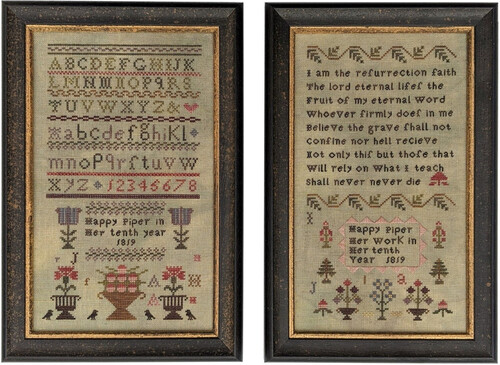 ABCDEFGHIJK
LMNOPQRS
TUVWXYZ&
abcdefghikl
mnopqrstuvw
xyz 12345678
Happy Piper in
Her tenth year
1819
r J
f A H
I am the refurrection faith
The lord eternal lifef the
Fruit of my eternal Word
Whoever firmly doef in me
Believe the grave fhall not
Confine nor hell recieve
Not only thif but thofe that
Will rely on What I teach
Shall never never die
Happy Piper
Her Work in
Her tenth
Year 1819
J i a